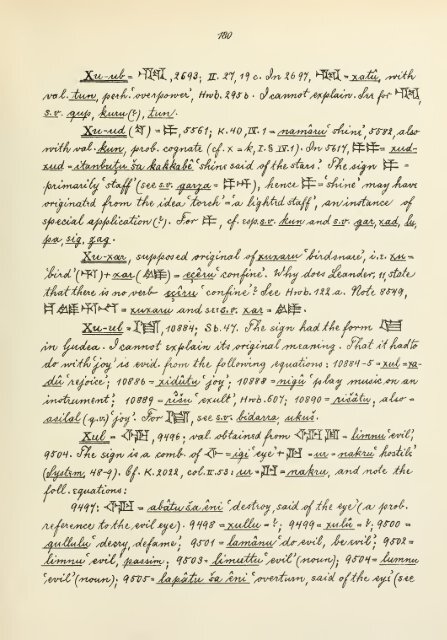 180
Xu-ub = 𒄷𒂠, 2693; II. 27, 19 c. In 2697, = xatû, with
val. tun, perh. 'overpower', Hwb. 295b. I cannot explain. See for
s.v. gup, kuru(?), tun.
Xu-ud ( ) = , 5561; K. 40, IV. 1 = namâru 'shine', 5582, also
with val. kun, prob. cognate (cf. x = k, I. § IV. 1). In 5617, = xud-
xud = itanbuṭu ša kakkabê 'shine said of the stars'. The sign =
primarily 'staff' (see s.v. garza = ), hence = 'shine' may have
originated from the idea 'torch' = 'a lighted staff', an instance of
special application (?). For , cf. esp. s.v. kun and s.v. gar, xad, lu,
pa, sig, zag.
Xu-xar, supposed original of xuxaru 'birdsnare', i.e. xu =
'bird' ( ) + xar ( ) = eçêru 'confine'. Why does Leander, 11, state
that there is no verb eçêru 'confine'? See Hwb. 122.a. Note 8549,
= xuxaru and see s.v. xar = .
Xu-ul = , 10884; Sb. 47. The sign had the form
in Gudea. I cannot explain its original meaning. That it had to
do with 'joy' is evid. from the following equations: 10884-5 = xul = xa-
dû 'rejoice'; 10886 = xidûtu 'joy'; 10888 = nigû 'play music on an
instrument'; 10889 = rîšu 'exult', Hwb. 607; 10890 = rišâtu; also =
asilal (q.v.) 'joy'. For , see s.v. bidarra, ukuš.
Xul = , 9496; val. obtained from = limnu 'evil',
9504. The sign is a comb. of = igi 'eye' + = ur = nakru 'hostile'
(System, 48-9). Cf. K. 2022, col. II. 53: ur = = nakru, and note the
foll. equations:
9497: = abâtu ša êni 'destroy, said of the eye' (a prob.
reference to the evil eye). 9498 = xullu = ?; 9499 = xulû = ?; 9500 =
qullulu 'decry, defame'; 9501 = lamânu 'do evil, be evil'; 9502 =
limnu 'evil', passim; 9503 = limuttu 'evil' (noun); 9504 = lumnu
'evil' (noun); 9505 = lapâtu ša êni 'overturn, said of the eye' (see